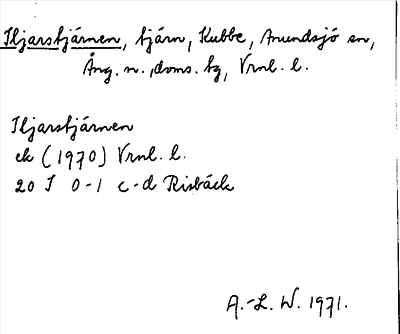 Iljarstjärnen, tjärn, Kubbe, Anundsjö sn,
Ång. n. doms. tg, Vrnl. l.
Iljarstjärnen
ek (1970) Vrnl. l.
20 I 0-1 c-d Risbäck
A.-L. W. 1971.